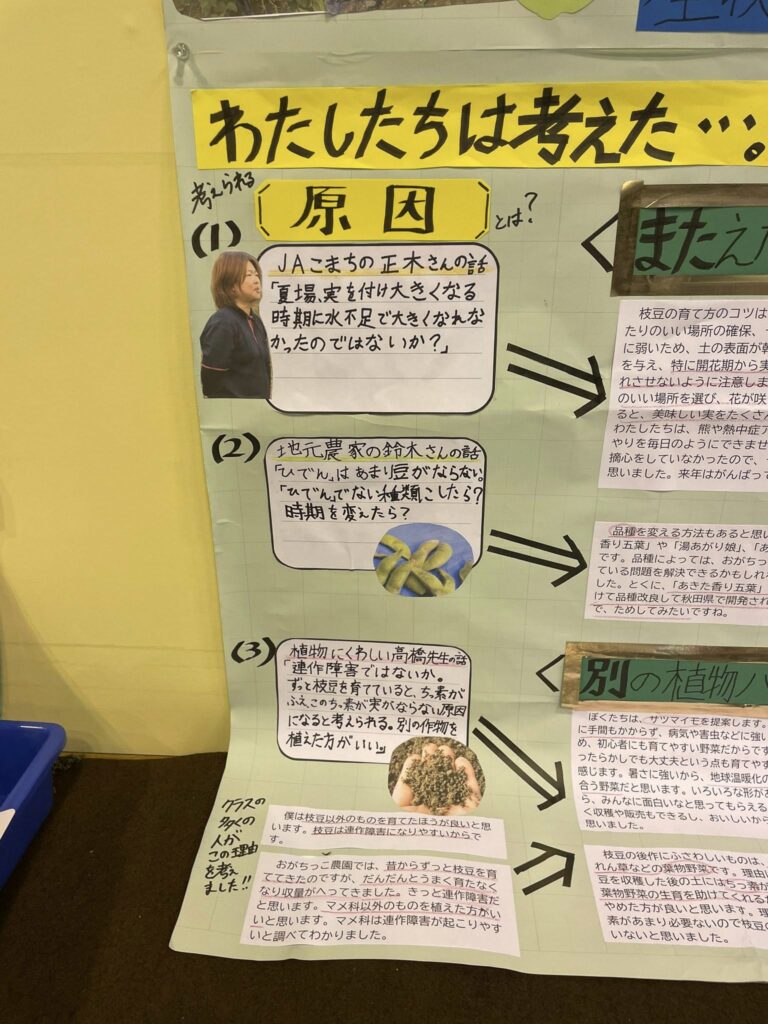 わたしたちは考えた…。
考えられる
原因
とは?
(1)
JAこまちの正木さんの話
「夏場、実を付け大きくなる
時期に水不足で大きくなれな
かったのではないか?」
(2)
地元農家の鈴木さんの話
「ひでん」はあまり豆がならない。
「ひでん」でない種類にしたら?
時期を変えたら?
(3)
植物にくわしい高橋先生の話
「連作障害ではないか。
ずっと枝豆を育てていると、ちっ素が
ふえ、このちっ素が実がならない原因
になると考えられる。別の作物を
植えた方がいい。」
クラスの
多くの
人が
この理由
を考え
ました!!
僕は枝豆以外のものを育てたほうが良いと思
います。枝豆は連作障害になりやすいからで
す。
おがちっこ農園では、昔からずっと枝豆を育
ててきたのですが、だんだんとうまく育たなく
なり収量がへってきました。きっと連作障害だ
と思います。マメ科以外のものを植えた方がい
いと思います。マメ科は連作障害が起こりやす
いと調べてわかりました。
またえだ
枝豆の育て方のコツは
たりのいい場所の確保、
に弱いため、土の表面が乾
を与え、特に開花期から実
れさせないように注意しま
のいい場所を選び、花が咲
ると、美味しい実をたくさん
わたしたちは、熊や熱中症ア
やりを毎日のようにできませ
摘心をしていなかったので、
思いました。来年はがんばって
品種を変える方法もあると思い
香り五葉」や「湯あがり娘」、「あ
です。品種によっては、おがちっ
ている問題を解決できるかもしれ
した。とくに、「あきた香り五葉」
けて品種改良して秋田県で開発され
で、ためしてみたいですね。
別の植物
ぼくたちは、サツマイモを提案します。
に手間もかからず、病気や害虫などに強い
め、初心者にも育てやすい野菜だからです
ったらかしでも大丈夫という点も育てやす
感じます。暑さに強いから、地球温暖化の
合う野菜だと思います。いろいろな形があ
ら、みんなに面白いなと思ってもらえる
く収穫や販売もできるし、おいしいから
思いました。
枝豆の後作にふさわしいものは、
れん草などの葉物野菜です。理由
豆を収穫した後の土にはちっ素が
葉物野菜の生育を助けてくれるか
やめた方が良いと思います。理
素があまり必要ないので枝豆の
いないと思いました。